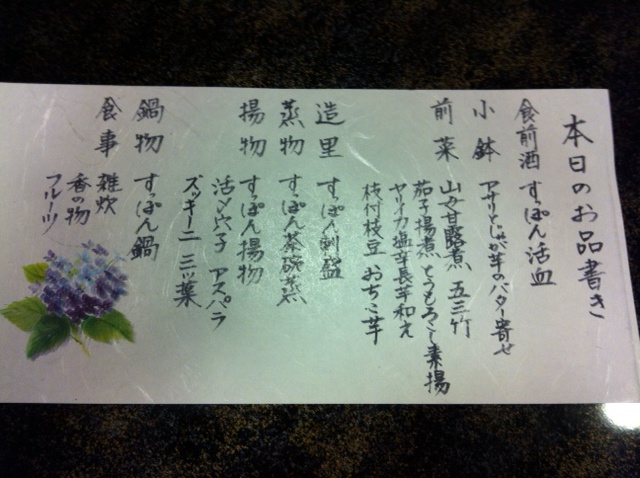 本日のお品書き
食前酒 すっぽん活血
小鉢 アサリとじゃが芋のバター寄せ
前菜 山女甘露煮 五三竹
茄子揚煮 とうもろこし素揚
ヤリイカ塩辛長芋和え
枝付枝豆 おちご芋
造里 すっぽん刺盛
蒸物 すっぽん茶碗蒸
揚物 すっぽん揚物
活〆穴子 アスパラ
ズッキーニ 三ッ葉
鍋物 すっぽん鍋
食事 雑炊
香の物
フルーツ